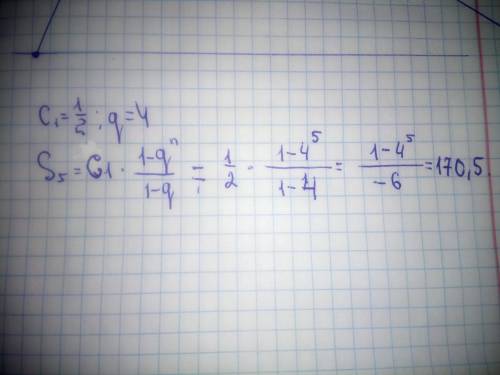 C₁ = 1/2 ; q = 4
S₅ = C1 · (1-qⁿ)/(1-q) = 1/2 · (1-4⁵)/(1-4) = (1-4⁵)/(-6) = 170,5